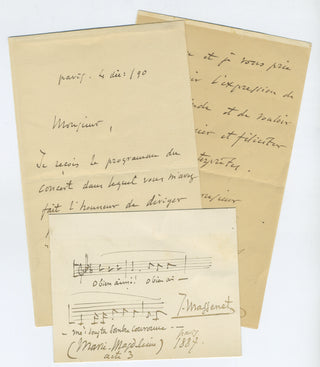 paris. 4 déc: /90
Monsieur,
Je reçois le programme du
concert dans lequel vous m'avez
fait l'honneur de diriger
et je vous prie
l'expression de
et de vouloir
et féliciter
interprètes.
Monsieur
O bien-aimé! O bien ai-
- mé! sous ta sombre couronne - -
(Marie-Magdeleine)
acte 3
J. Massenet
paris
1887.